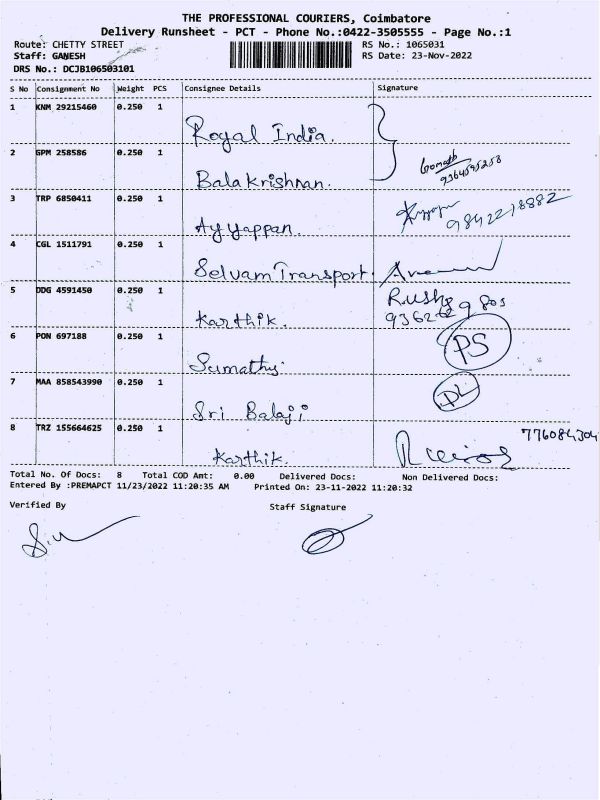 THE PROFESSIONAL COURIERS, Coimbatore
Delivery Runsheet - PCT - Phone No.:0422-3505555 - Page No.:1
Route: CHETTY STREET
RS No.: 1065031
Staff: GANESH
RS Date: 23-Nov-2022
DRS No.: DCJB106503101
S No Consignment No Weight PCS Consignee Details Signature
1 KNM 29215460 0.250 1
Royal India.
2 GPM 258586 0.250 1
Balakrishnan.
3 TRP 6850411 0.250 1
Ayyappan. 9842218882
4 CGL 1511791 0.250 1
Selvam Transport.
5 DDG 4591450 0.250 1
Karthik.
6 PON 697188 0.250 1 PS
Sumathy.
7 MAA 858543990 0.250 1 DL
Sri Balaji
8 TRZ 155664625 0.250 1 776084304
Karthik.
Total No. Of Docs: 8 Total COD Amt: 0.00 Delivered Docs: Non Delivered Docs:
Entered By :PREMAPCT 11/23/2022 11:20:35 AM Printed On: 23-11-2022 11:20:32
Verified By Staff Signature